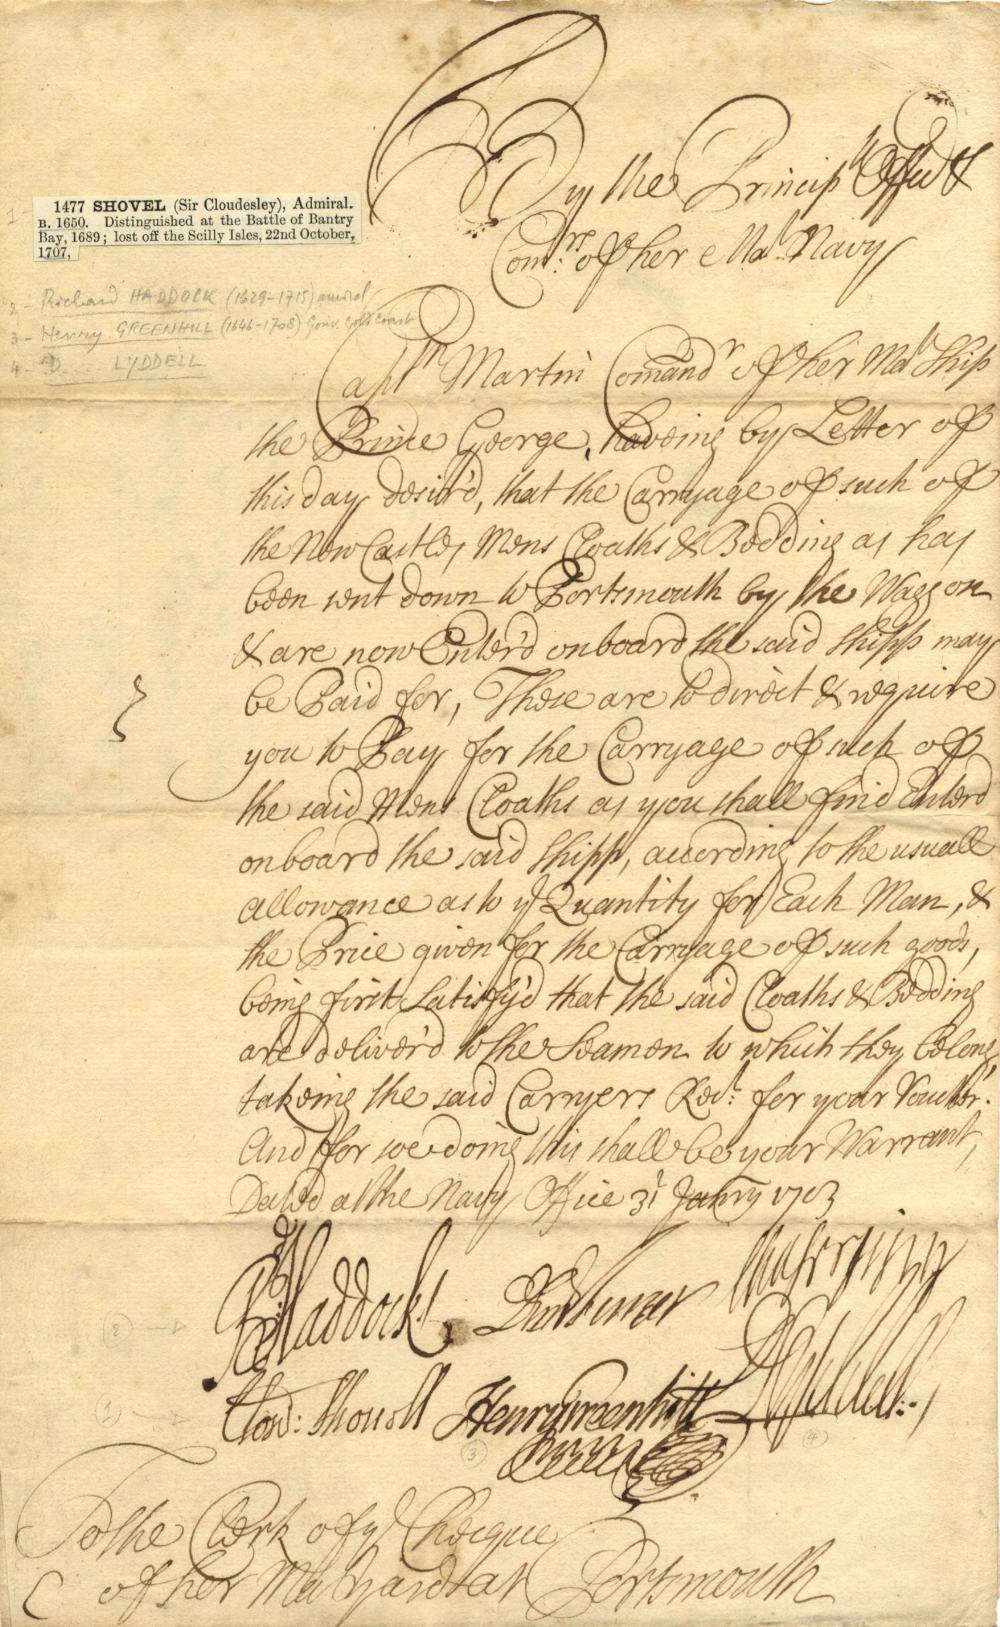 By the Principll Officrs &
Comrs: of her Mats. Navy
1477 SHOVEL (Sir Cloudesley), Admiral.
B. 1650. Distinguished at the Battle of Bantry
Bay, 1689; lost off the Scilly Isles, 22nd October,
1707,
1 -
2 - Richard HADDOCK (1629-1715) amiral
3 - Henry GREENHILL (1646-1708) Gouv. Gold Coast
4 - D. LYDDELL
Captn Martin Comandr of her Mats Ship
the Prince George, haveing by Letter of
this day desir'd, that the Carryage of such of
the New Castles Mens Cloaths & Bedding as has
been sent down to Portsmouth by the Waggon
& are now Enter'd onboard the said Shipp may
be Paid for, These are to direct & require
you to Pay for the Carryage of such of
the said Mens Cloaths as you shall find Enterd
onboard the said Shipp, according to the usuall
allowance as to ye Quantity for Each Man, &
the Price given for the Carryage of such goods,
being first Satisfy'd that the said Cloaths & Bedding
are deliver'd to the Seamen to which they belong,
takeing the said Carryers Rect: for your Voucher.
And for soe doing this shall be your Warrant,
Dated at the Navy Office 31 Janry 1703
R Haddock
Clowd: Shovell Henry Greenhill D Lyddell
2
1
3
4
To the Clerk of ye Checque
of her Mats Yard at Portsmouth